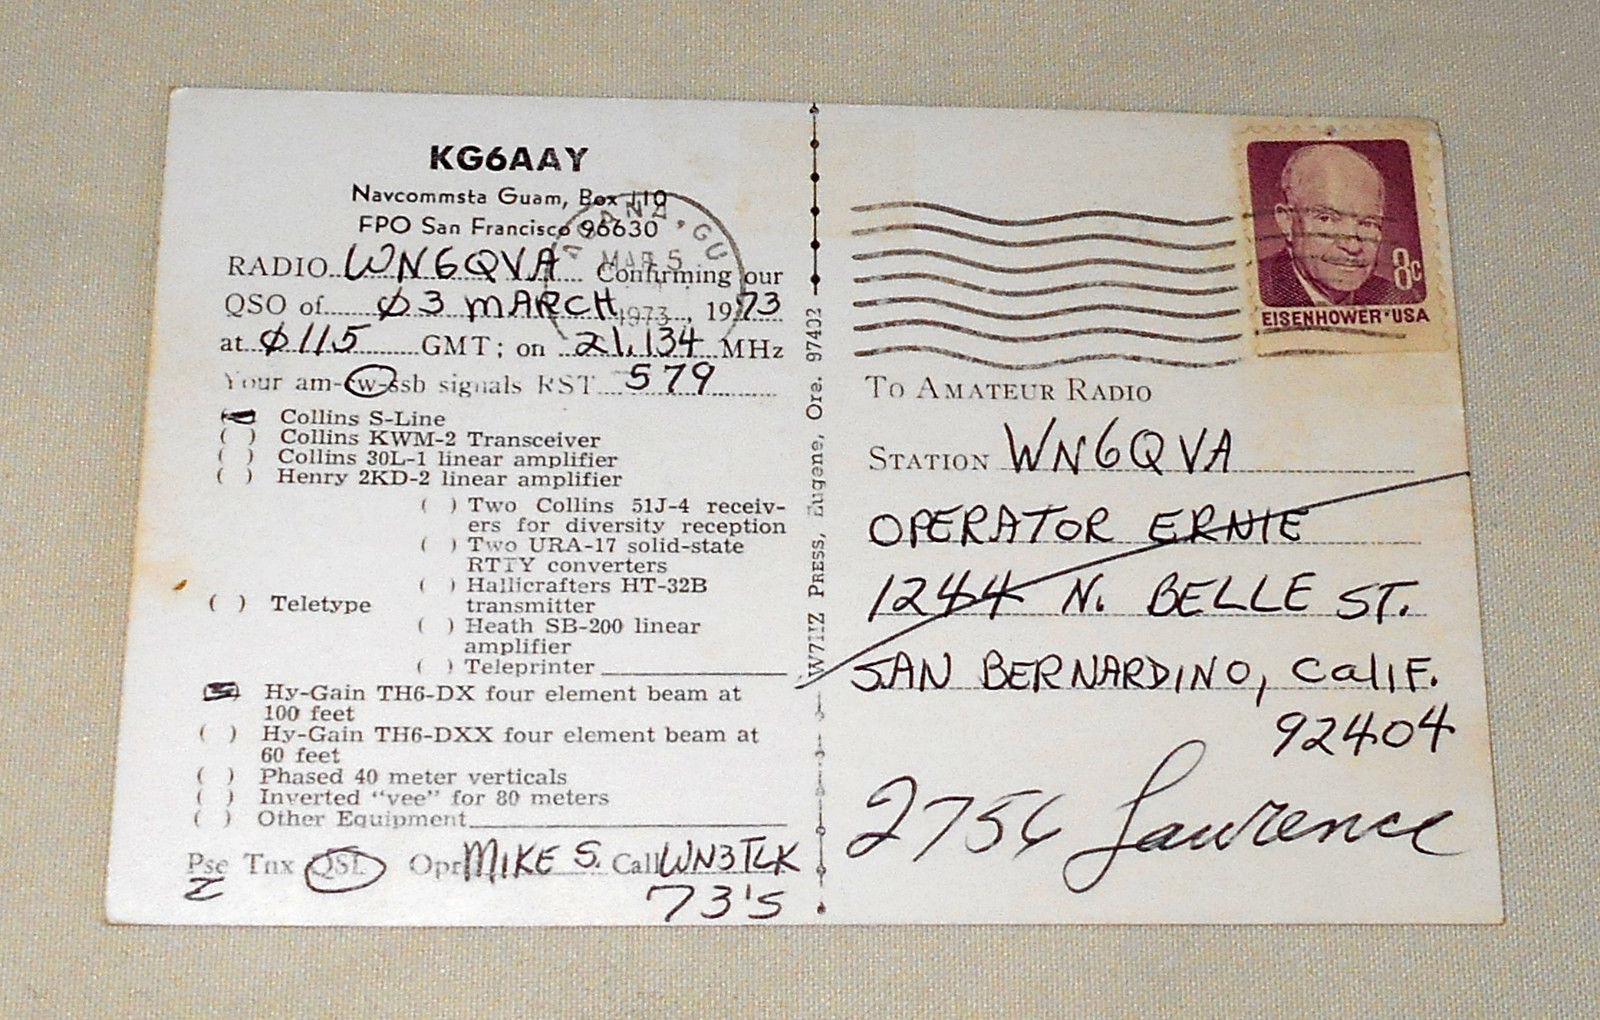 KG6AAY
Navcommsta Guam, Box 110
FPO San Francisco 96630
RADIO WN6QVA Confirming our
QSO of Ø3 MARCH, 1973
at Ø115 GMT; on 21,134 MHz
Your am-cw-ssb signals RST 579
Collins S-Line
( ) Collins KWM-2 Transceiver
( ) Collins 30L-1 linear amplifier
( ) Henry 2KD-2 linear amplifier
( ) Two Collins 51J-4 receiv-
ers for diversity reception
( ) Two URA-17 solid-state
RTTY converters
( ) Hallicrafters HT-32B
( ) Teletype transmitter
( ) Heath SB-200 linear
amplifier
( ) Teleprinter
Hy-Gain TH6-DX four element beam at
100 feet
( ) Hy-Gain TH6-DXX four element beam at
60 feet
( ) Phased 40 meter verticals
( ) Inverted "vee" for 80 meters
( ) Other Equipment
Pse Tnx QSL Opr MIKE S. Call WN3TLK
73's
AGANA, GU
MAR 5
1973
W7IIZ PRESS, Eugene, Ore. 97402
8c
EISENHOWER·USA
TO AMATEUR RADIO
STATION WN6QVA
OPERATOR ERNIE
1244 N. BELLE ST.
SAN BERNARDINO, CalIF.
92404
2756 Lawrence